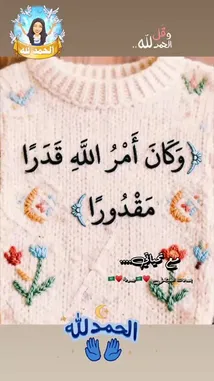 وقل
الحمد لله..
الحمد لله
﴿وَكَانَ أَمْرُ اللَّهِ قَدَرًا
مَقْدُورًا﴾
مع تحياتي...
الحمد لله